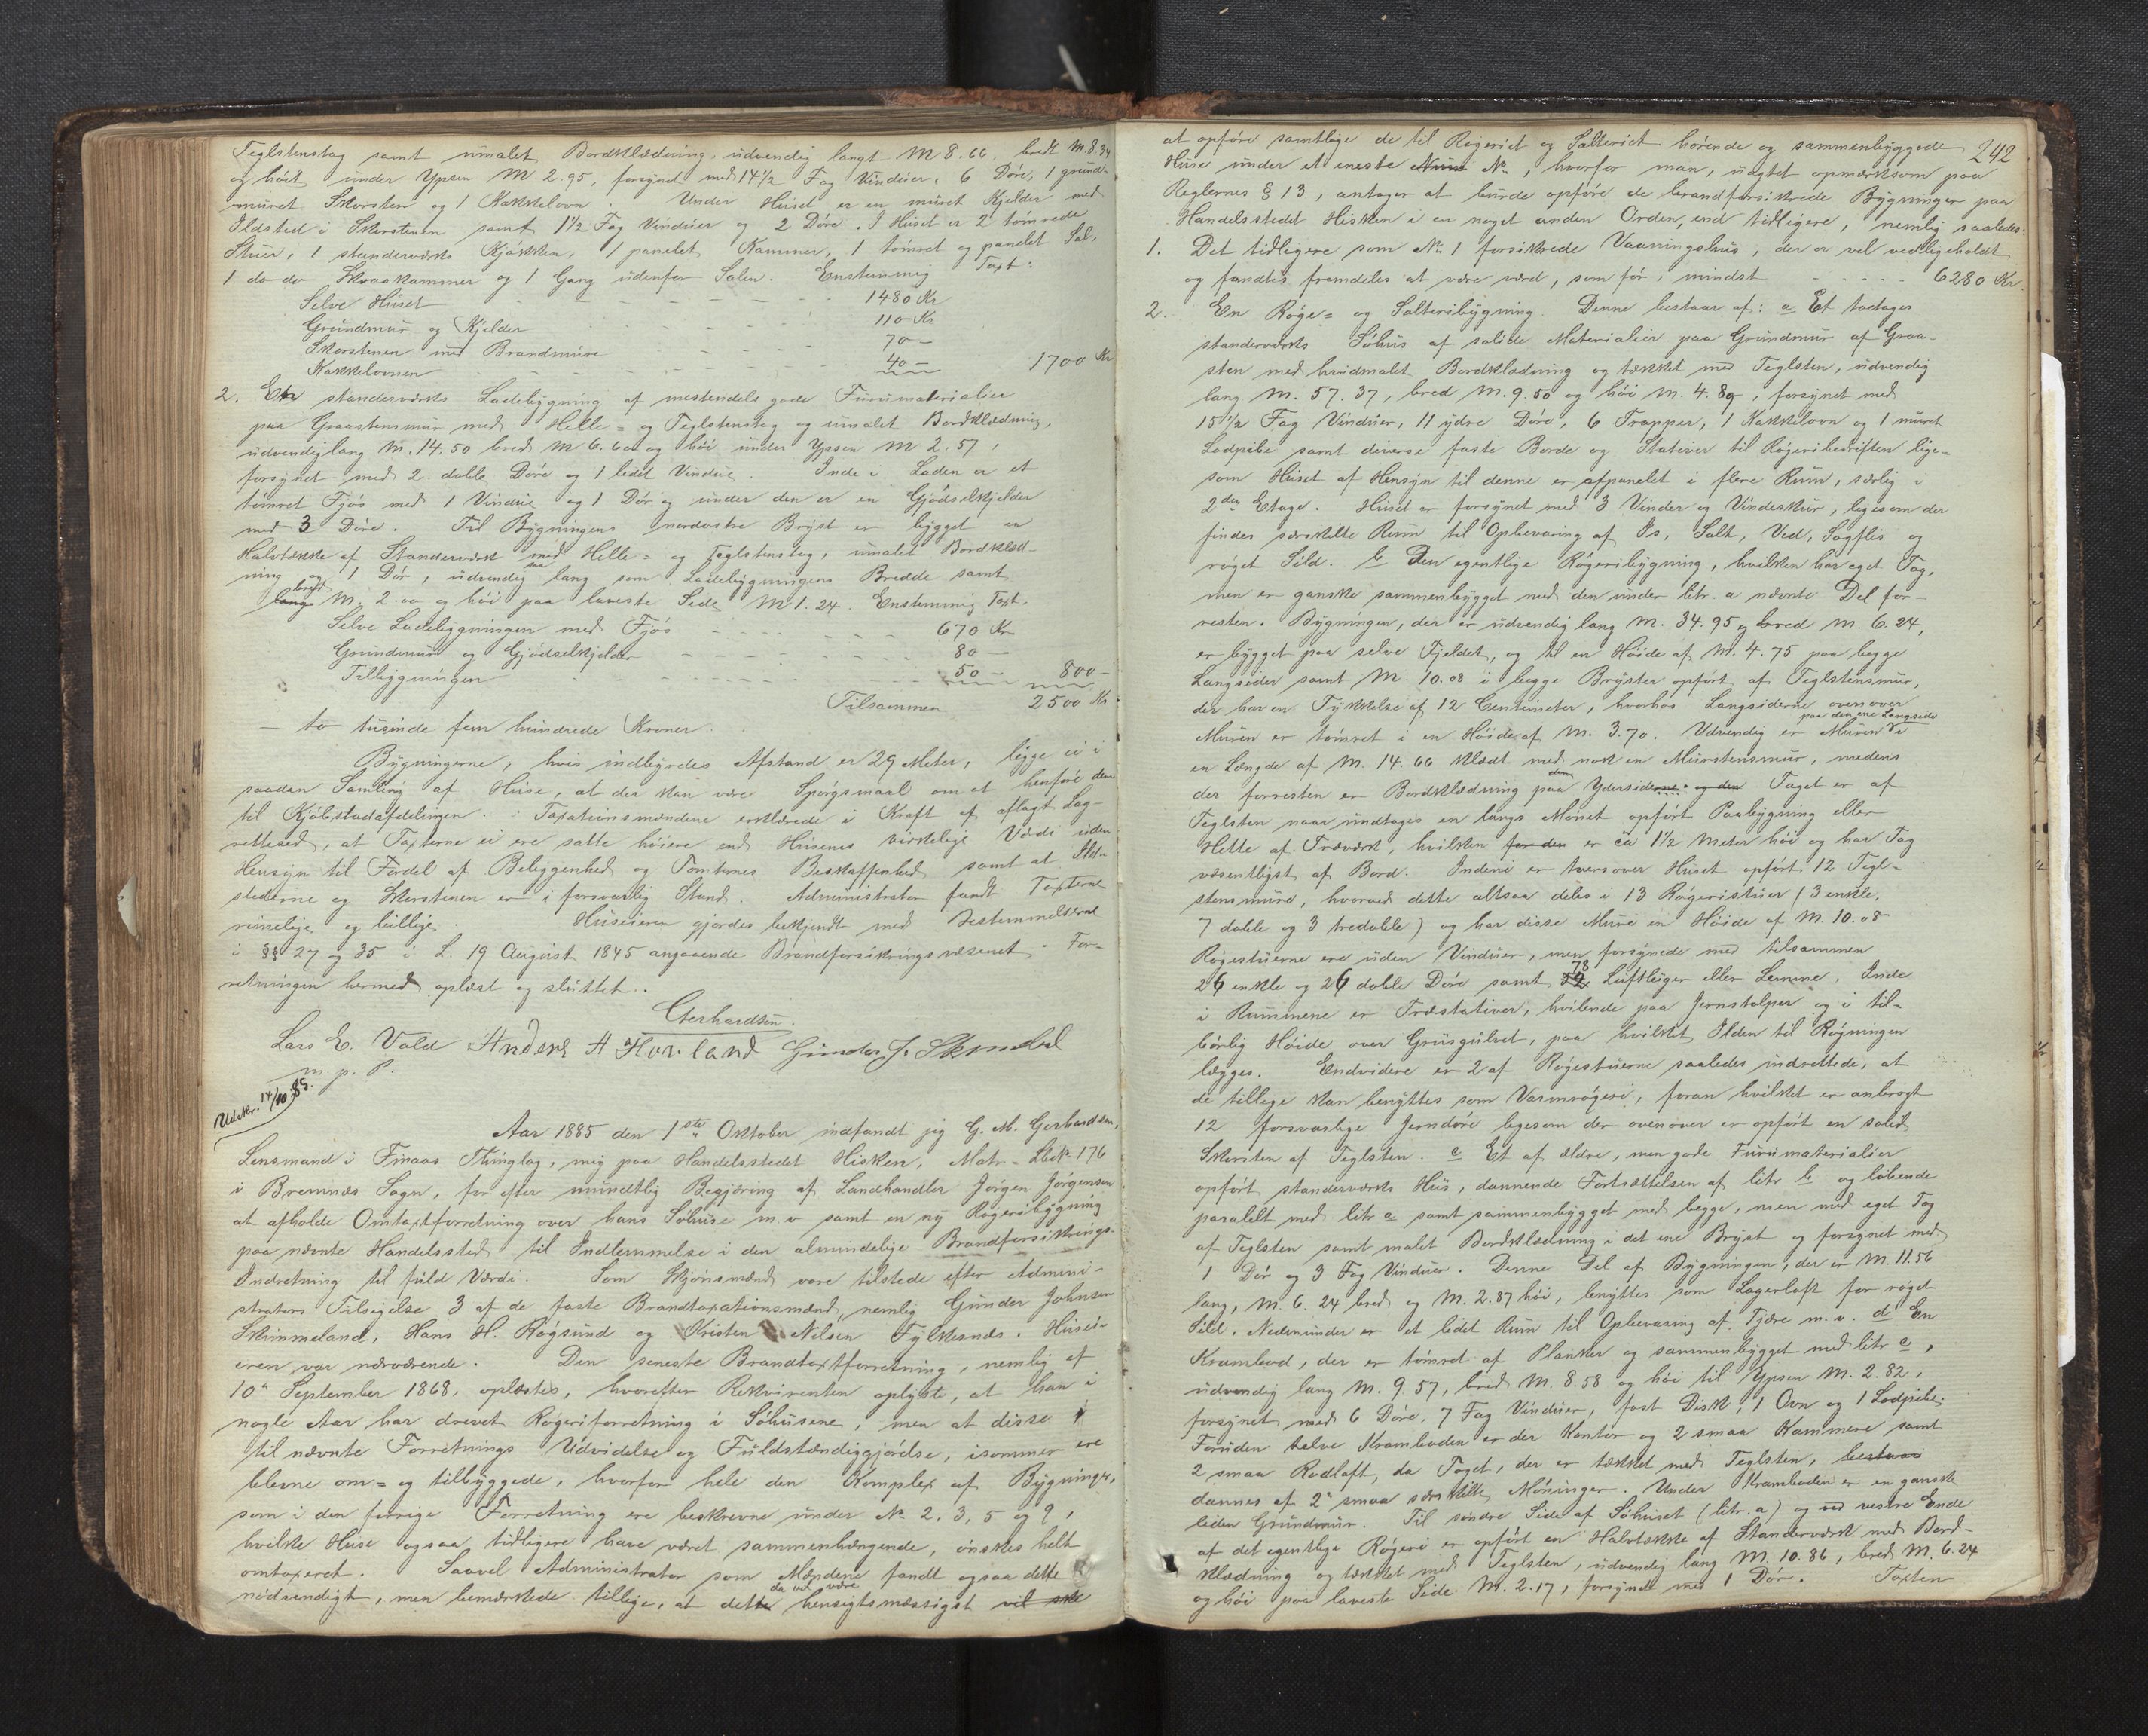 Teglstenstag samt umalet Bordklædning, udvendig langt M 8.66, bredt M 8.34
og høit under Ypsen M. 2.95, forsynet med 14 1/2 Fag Vinduer, 6 Døre, 1 grund-
muret Skorsten og 1 Kakkelovn. Under Huset er en muret Kjelder med
Ildsted i Skorstenen samt 1 1/2 Fag Vinduer og 2 Døre. I Huset er 2 tømrede
Stuer, 1 standerværks Kjøkken, 1 panelet Kammer, 1 tømret og panelet Sal,
1 do do Skraakammer og 1 Gang udenfor Salen. Enstemmig Taxt:
Selve Huset 1480 Kr
Grundmur og Kjelder 110 Kr
Skorstenen med Brandmure 70 —
Kakkelovnen 40 — 1700 Kr
2. En standerværks Ladebygning af mestendels gode Furumaterialier
paa Graastensmur med Helle- og Teglstenstag og umalet Bordklædning,
udvendig lang M. 14.50 bred M 6.60 og høi under Ypsen M 2.57,
forsynet med 2 doble Døre og 1 lidet Vindue. Inde i Laden er et
tømret Fjøs med 1 Vindue og 1 Dør og under den er en Gjødselkjelder
med 3 Døre. Til Bygningens nordostre Bryst er bygget en
Halvtække af Standerværk med Helle- og Teglstenstag, umalet Bordklæd-
ning og 1 Dør, udvendig saa lang som Ladebygningens Bredde samt
lang bred M. 2.00 og høi paa laveste Side M 1.24. Enstemmig Taxt.
Selve Ladebygningen med Fjøs 670 Kr
Grundmur og Gjødselkjelder 80 —
Tilbygningen 50 — 800 —
Tilsammen 2500 Kr.
— to tusinde fem hundrede Kroner.
Bygningerne, hvis indbyrdes Afstand er 29 Meter, ligge ei i
saadan Samling af Huse, at der kan være Spørgsmaal om at henføre dem
til Kjøbstadafdelingen. Taxationsmændene erklærede i Kraft af aflagt Lag-
retteed, at Taxterne ei ere satte høiere end Husenes virkelige Værdi uden
Hensyn til Fordel af Beliggenhed og Tomternes Beskaffenhed samt at Ild-
stederne og Skorstenen er i forsvarlig Stand. Administrator fandt Taxterne
rimelige og billige. Huseieren gjordes bekjendt med Bestemmelserne
i §§ 27 og 35 i L. 19 August 1845 angaaende Brandforsikringsvæsenet. For-
retningen hermed oplæst og sluttet.
Gerhardsen.
Lars E. Vold Anders A Hovland Gunder J. Skimeland
m. p. P.
Udskr. 14/10 85.
Aar 1885 den 1ste Oktober indfandt jeg G. M. Gerhardsen,
Lensmand i Finaas Thinglag, mig paa Handelsstedet Hisken, Matr. Lbno 176
i Bremnæs Sogn, for efter mundtlig Begjæring af Landhandler Jørgen Jørgensen
at afholde Omtaxtforretning over hans Søhuse m.v samt en ny Røgeribygning
paa nævnte Handelssted til Indlemmelse i den almindelige Brandforsikrings-
Indretning til fuld Værdi. Som Skjønsmænd vare tilstede efter Admini-
strators Tilsigelse 3 af de faste Brandtaxationsmænd, nemlig Gunder Johnsen
Skimmeland, Hans H. Røgsund og Kristen Nilsen Fylkesnæs. Husei-
eren var nærværende. Den seneste Brandtaxtforretning, nemlig af
10de September 1868, oplæstes, hvorefter Rekvirenten oplyste, at han i
nogle Aar har drevet Røgeriforretning i Søhusene, men at disse
til nævnte Forretnings Udvidelse og Fuldstændiggjørelse, isommer ere
blevne om- og tilbyggede, hvorfor hele den Komplex af Bygninger,
som i den forrige Forretning ere beskrevne under No 2, 3, 5 og 9,
hvilke Huse ogsaa tidligere have været sammenhængende, ønskes helt
omtaxeret. Saavel Administrator som Mændene fandt ogsaa dette
nødvendigt, men bemærkede tillige, at det da vil være hensigtsmæssigst vil ske
242
at opføre samtlige de til Røgeriet og Salteriet hørende og sammenbyggede
Huse under et eneste Num No, hvorfor man, udgtet opmærksom paa
Reglernes § 13, antager at burde opføre de brandforsikrede Bygninger paa
Handelsstedet Hisken i en noget anden Orden, end tidligere, nemlig saaledes:
1. Det tidligere som No 1 forsikrede Vaaningshus, der er vel vedligeholdt
og fandtes fremdeles at være værd, som før, mindst 6280 Kr.
2. En Røge- og Salteribygning. Denne bestaar af: a Et toetages
standerværks Søhus af solide Materialier paa Grundmur af Graa-
sten med hvidmalet Bordklædning og tækket med Teglsten, udvendig
lang M. 57.37, bred M. 9.50 og høi M. 4.89, forsynet med
15 1/2 Fag Vinduer, 11 ydre Døre, 6 Trapper, 1 Kakkelovn og 1 muret
Lodpibe samt diverse faste Borde og Stativer til Røgeribedriften lige-
som Huset af Hensyn til denne er afpanelet i flere Rum, særlig i
2den Etage. Huset er forsynet med 3 Vinder og Vindeskur, ligesom der
findes særskilte Rum til Opbevaring af Is, Salt, Ved, Sagflis og
røget Sild. b Den egentlige Røgeribygning, hvilken har eget Tag,
men er ganske sammenbygget med den under litr. a nævnte Del for-
resten. Bygningen, der er udvendig lang M. 34.95 og bred M. 6.24,
er bygget paa selve Fjeldet, og til en Høide af M. 4.75 paa begge
Langsider samt M. 10.08 i begge Bryster opført af Teglstensmur,
der har en Tykkelse af 12 Centimeter, hvorhos Langsiderne ovenover
Muren er tømret i en Høide af M. 3.70. Udvendig er Muren paa den ene Langside i
en Længde af M. 14.66 klædt med nok en Murstensmur, medens
der forresten er Bordklædning paa den Yderside og den Taget er af
Teglsten naar undtages en langs Mønet opført Paabygning eller
Hette af Træværk, hvilken for den er ca 1 1/2 Meter høi og har Tag
væsentligst af Bord. Indeni er tversover Huset opført 12 Tegl-
stensmure, hvorved dette altsaa deles i 13 Røgeristuer (3 enkle,
7 doble og 3 tredoble) og har disse Mure en Høide af M. 10.08
Røgestuerne ere uden Vinduer, men forsynede med tilsammen
26 enkle og 26 doble Døre samt 78 Luftluger eller Lemme. Inde
i Rummene er Træstativer, hvilende paa Jernstolper og i til-
børlig Høide over Grusgulvet, paa hvilket Ilden til Røgningen
lægges. Endvidere er 2 af Røgestuerne saaledes indrettede, at
de tillige kan benyttes som Varmrøgeri, foran hvilket er anbragt
12 forsvarlige Jerndøre ligesom der ovenover er opført en solid
Skorsten af Teglsten. c Et af ældre, men gode Furumaterialier
opført standerværks Hus, dannende Fortsættelsen af litr b og løbende
paralelt med litr a samt sammenbygget med begge, men med eget Tag
af Teglsten samt malet Bordklædning i det ene Bryst og forsynet med
1 Dør og 3 Fag Vinduer. Denne Del af Bygningen, der er M. 11.56
lang, M. 6.24 bred og M. 2.87 høi, benyttes som Lagerloft for røget
Sild. Nedenunder er et lidet Rum til Opbevaring af Tjære m.v. d En
Krambod, der er tømret af Planker og sammenbygget med litr a,
udvendig lang M. 9.57, bred M. 8.58 og høi til Ypsen M. 2.82,
forsynet med 6 Døre, 7 Fag Vinduer, fast Disk, 1 Ovn og 1 Lodpibe.
Foruden selve Kramboden er der Kontor og 2 smaa Kammere samt
2 smaa Rodloft, da Taget, der er tækket med Teglsten, bestaar
dannes af 2 smaa særskilte Møninger. Under Kramboden er en ganske
liden Grundmur. Til søndre Side af Søhuset (litr. a) og ved vestre Ende
af det egentlige Røgeri er opført en Halvtække af Standerværk med Bord-
klædning og tækket med Teglsten, udvendig lang M. 10.86, bred M. 6.24
og høi paa laveste Side M. 2.17, forsynet med 1 Dør. Taxten